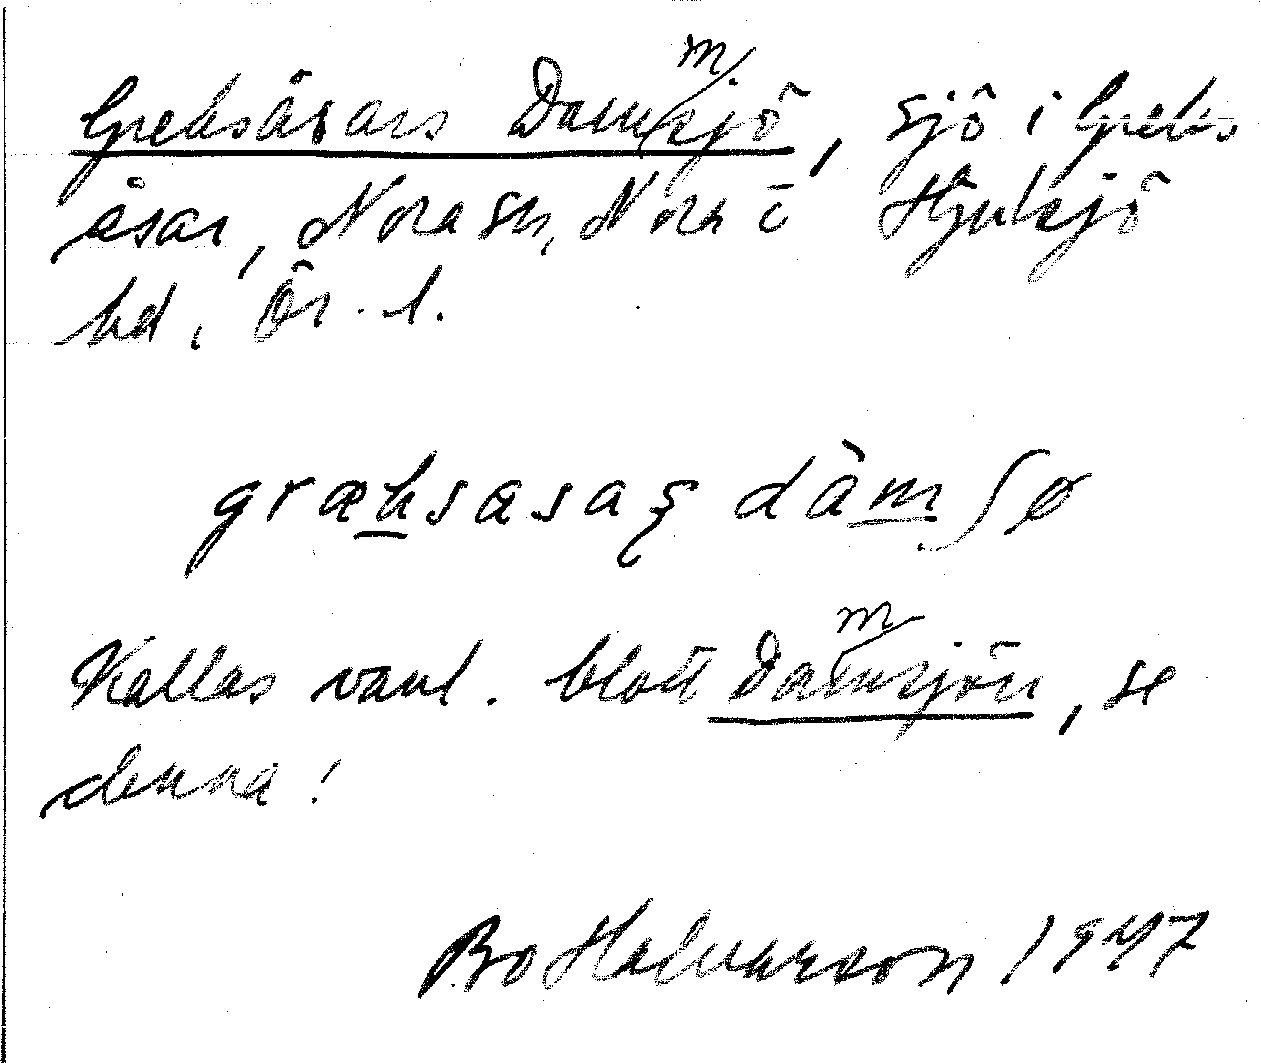 Greksåsars Dammsjö, sjö i Greks
åsar, Nora sn, Nora o Hjulsjö
hd, Ör. l.
græksasaş dàmʃø
Kallas vanl. blott Dammsjön, se
denna!
Bo Halvarson 1947